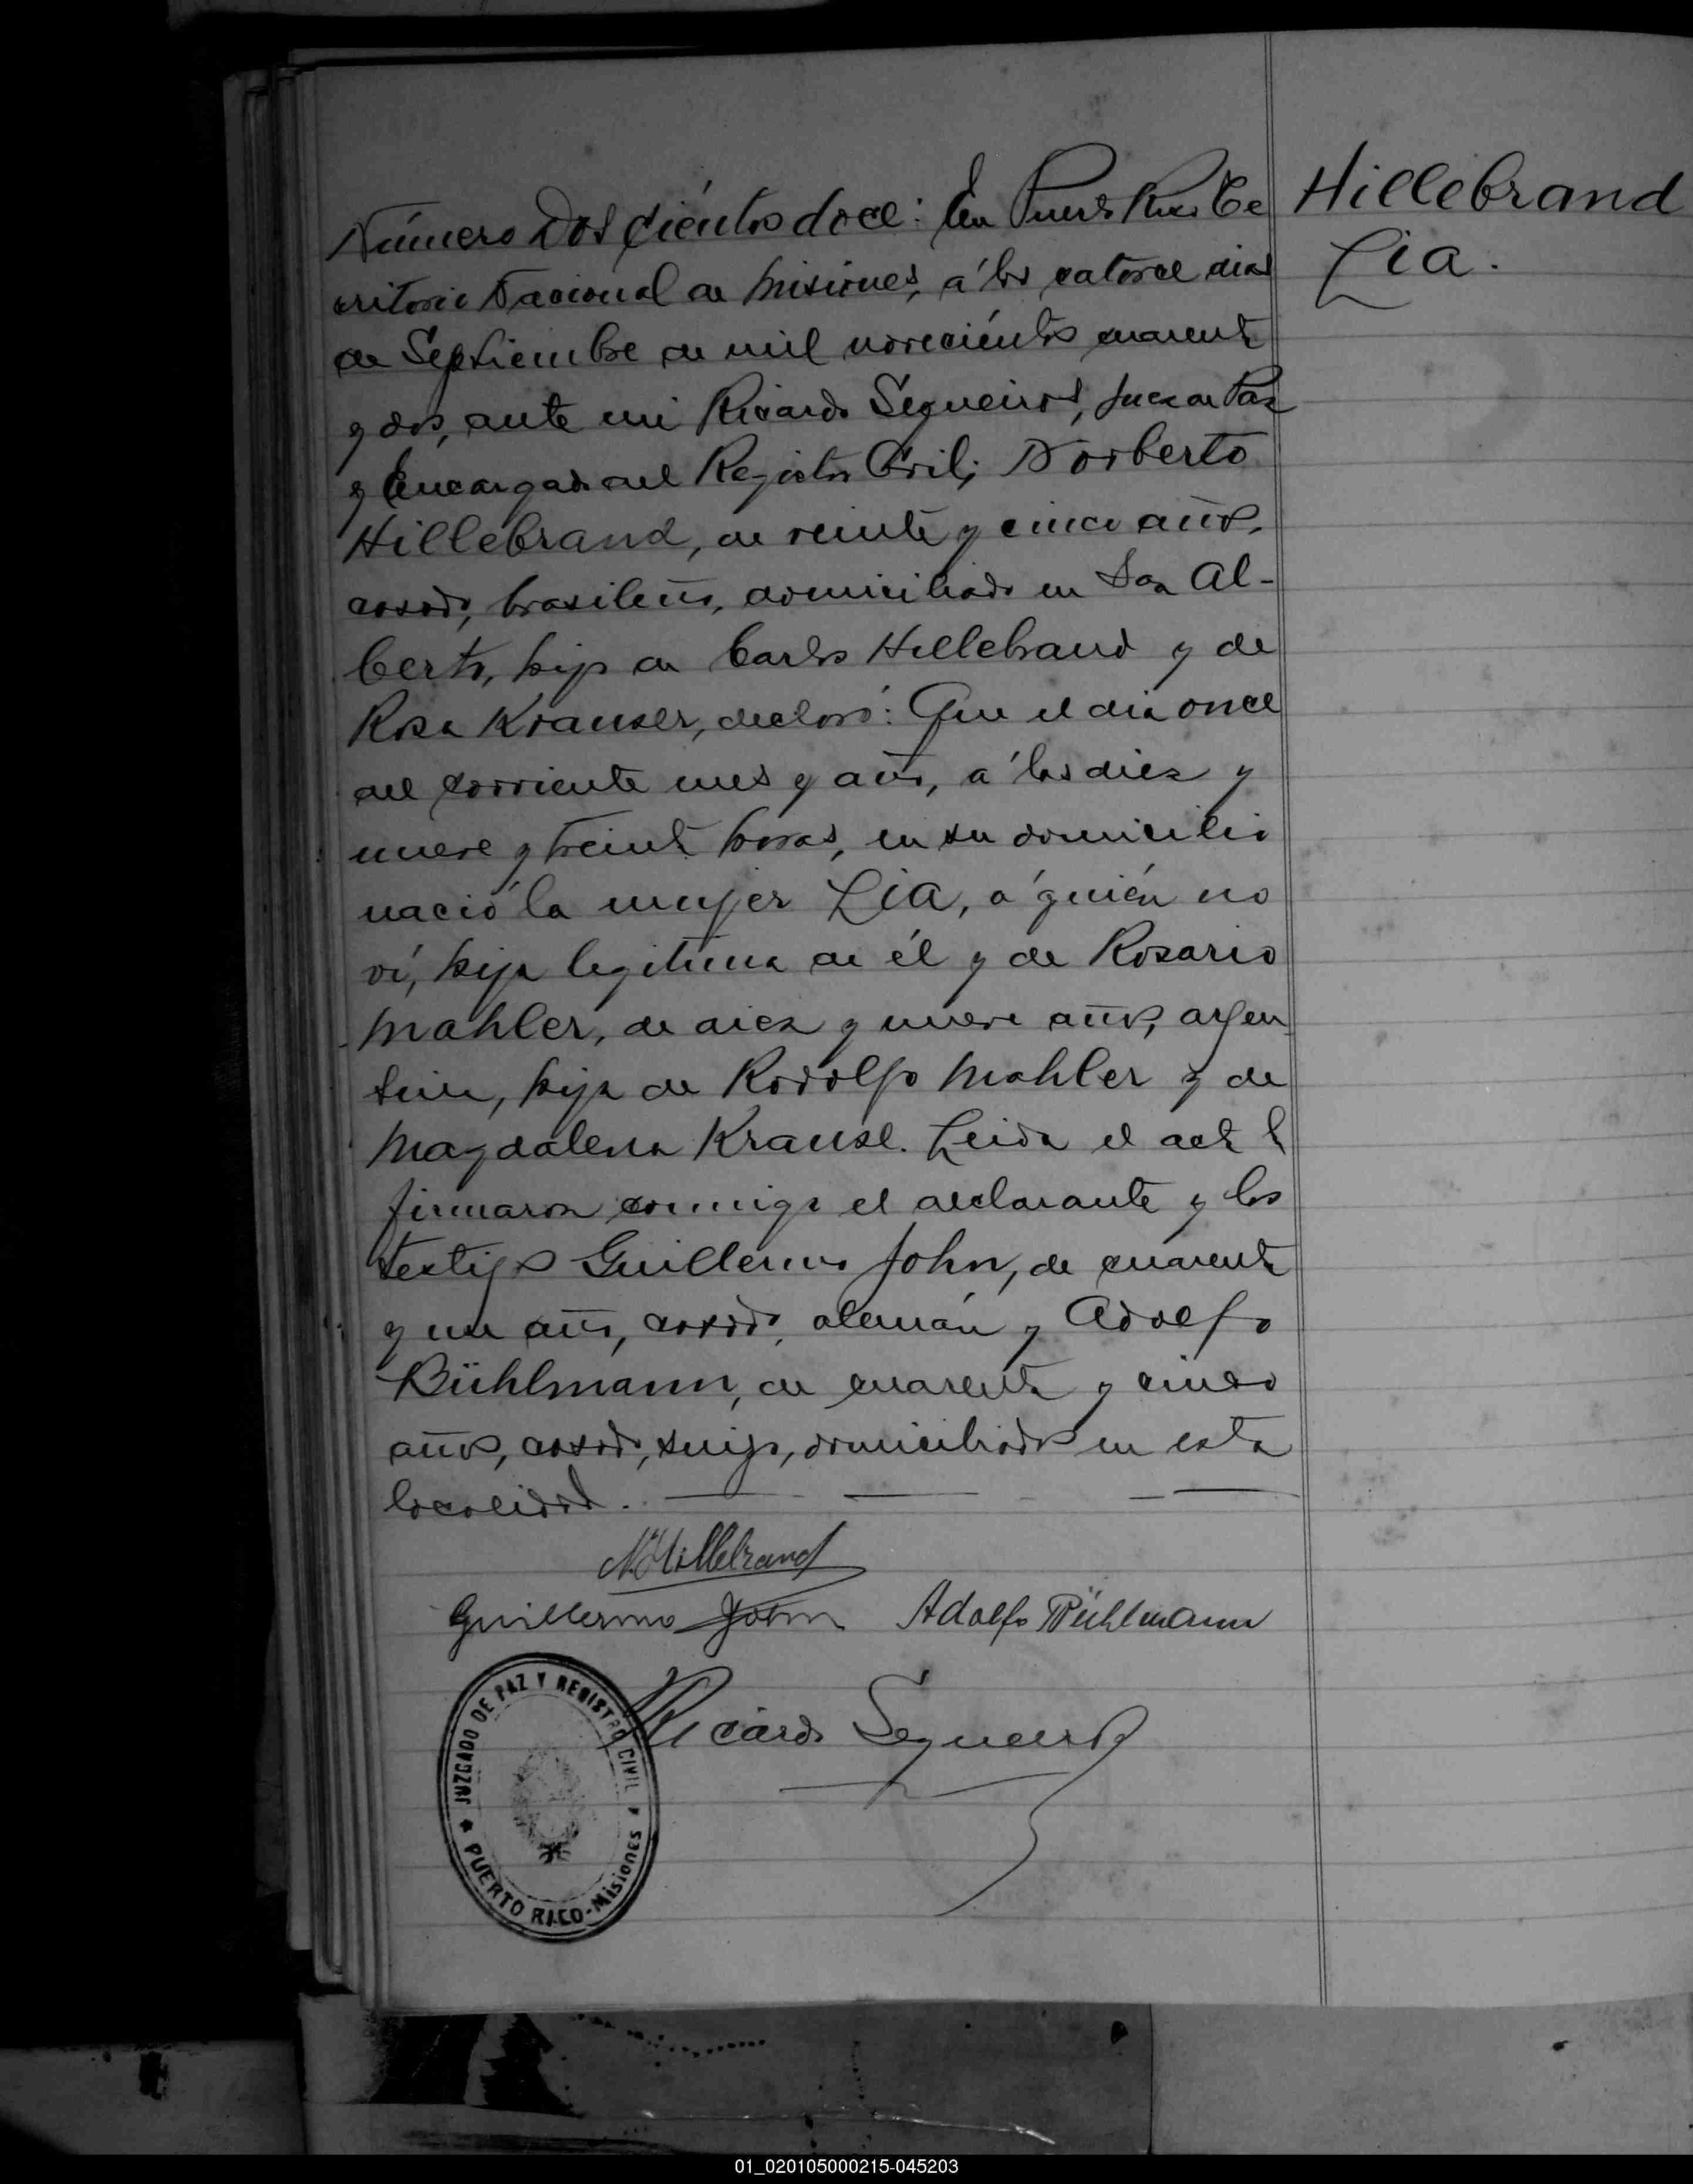 Hillebrand
Lia.
Número Dos cientos doce: En Puerto Rico Te
rritorio Nacional de Misiones, á los catorce dias
de Septiembre de mil novecientos cuarenta
y dos, ante mi Ricardo Sequeiros, Juez de Paz
y Encargado del Registro Civil; Norberto
Hillebrand, de veinte y cinco años,
casado, brasileño, domiciliado en San Al-
berto, hijo de Carlos Hillebrand y de
Rosa Krauser, declaró: Que el dia once
del corriente mes y año, á las diez y
nueve y treinta horas, en su domicilio
nació la mujer Lia, á quién no
ví, hija legitima de él y de Rosario
Mahler, de diez y nueve años, argen
tina, hija de Rodolfo Mahler y de
Magdalena Krause. Leida el acta la
firmaron conmigo el declarante y los
testigos Guillermo John, de cuarenta
y un año, casado, alemán y Adolfo
Bühlmann, de cuarenta y cinco
años, casado, suizo, domiciliados en esta
localidad.
N. Hillebrand
Guillermo John Adolfo Bühlmann
Ricardo Sequeiros
JUZGADO DE PAZ Y REGISTRO CIVIL
PUERTO RICO-Misiones
01_020105000215-045203